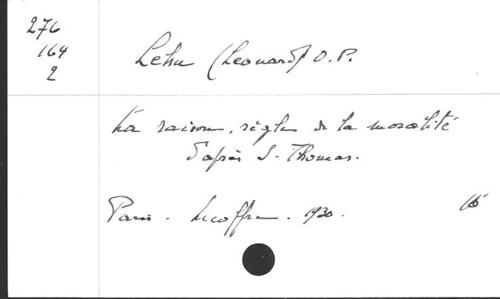 276
164
2
Lehu (Leonard) O.P.
La raison, règle de la moralité
d'après S. Thomas.
Paris. Lecoffre. 1930.